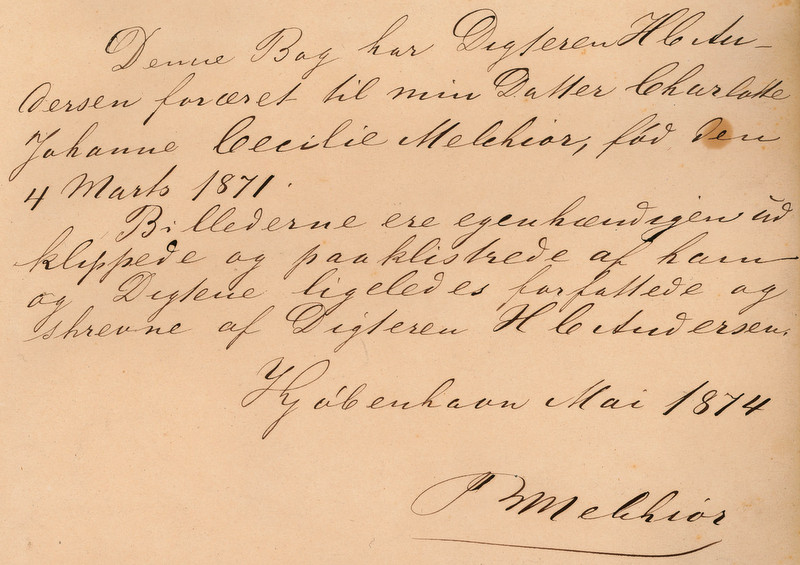 Denne Bog har Digteren H C An-
dersen foræret til min Datter Charlotte
Johanne Cecilie Melchior, fød den
4 Marts 1871.
Billederne ere egenhændigen ud
klippede og paaklistrede af ham
og Digtene ligeledes forfattede og
skrevne af Digteren H C Andersen.
Kjöbenhavn Mai 1874
Melchior